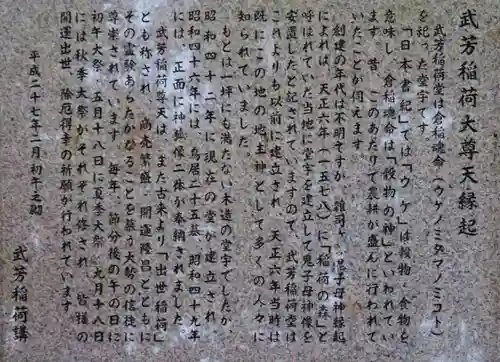 武芳稲荷大尊天縁起
武芳稲荷堂は倉稲魂命（ウケノミタマノミコト）
を祀った堂宇です。
「日本書紀」では「ウケ」は穀物・食物を
意味し、倉稲魂命は「穀物の神」といわれてい
ます。昔、このあたりで農耕が盛んに行われて
いたことが伺えます。
創建の年代は不明ですが、雑司ヶ谷鬼子母神縁起
によれば、天正六年（一五七八）に「稲荷の森」と
呼ばれていた当地に堂宇を建立して鬼子母神像を
安置したと記されていますので、武芳稲荷堂は
これよりも以前に建立され、天正六年当時は
既にこの地の地主神として多くの人々に
知られていました。
もとは一坪にも満たない木造の堂宇でしたが、
昭和四十二年に現在の堂が建立され、
昭和四十六年には、鳥居二十五基、昭和四十九年
には、正面に神狐像二体が奉納されました。
武芳稲荷尊天は、また古来より「出世稲荷」
とも称され、商売繁盛・開運隆昌とともに
その霊験あらたかなることを慕う大勢の信徒に
尊崇されています。毎年、節分後の午の日に
初午大祭、五月十八日に夏季大祭、九月十八日
には秋季大祭がそれぞれ修され、皆様の
開運出世、除厄得幸の祈願が行われています。
平成二十七年二月初午之勅
武芳稲荷講